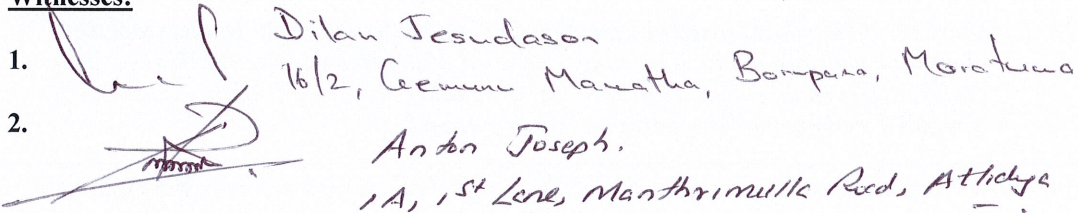 Witnesses:
1. Dilan Jesudason
16/2, Gemunu Mawatha, Borupana, Moratuwa
2.
Anton Joseph.
1A, 1st Lane, Manthrimulla Road, Attidiya